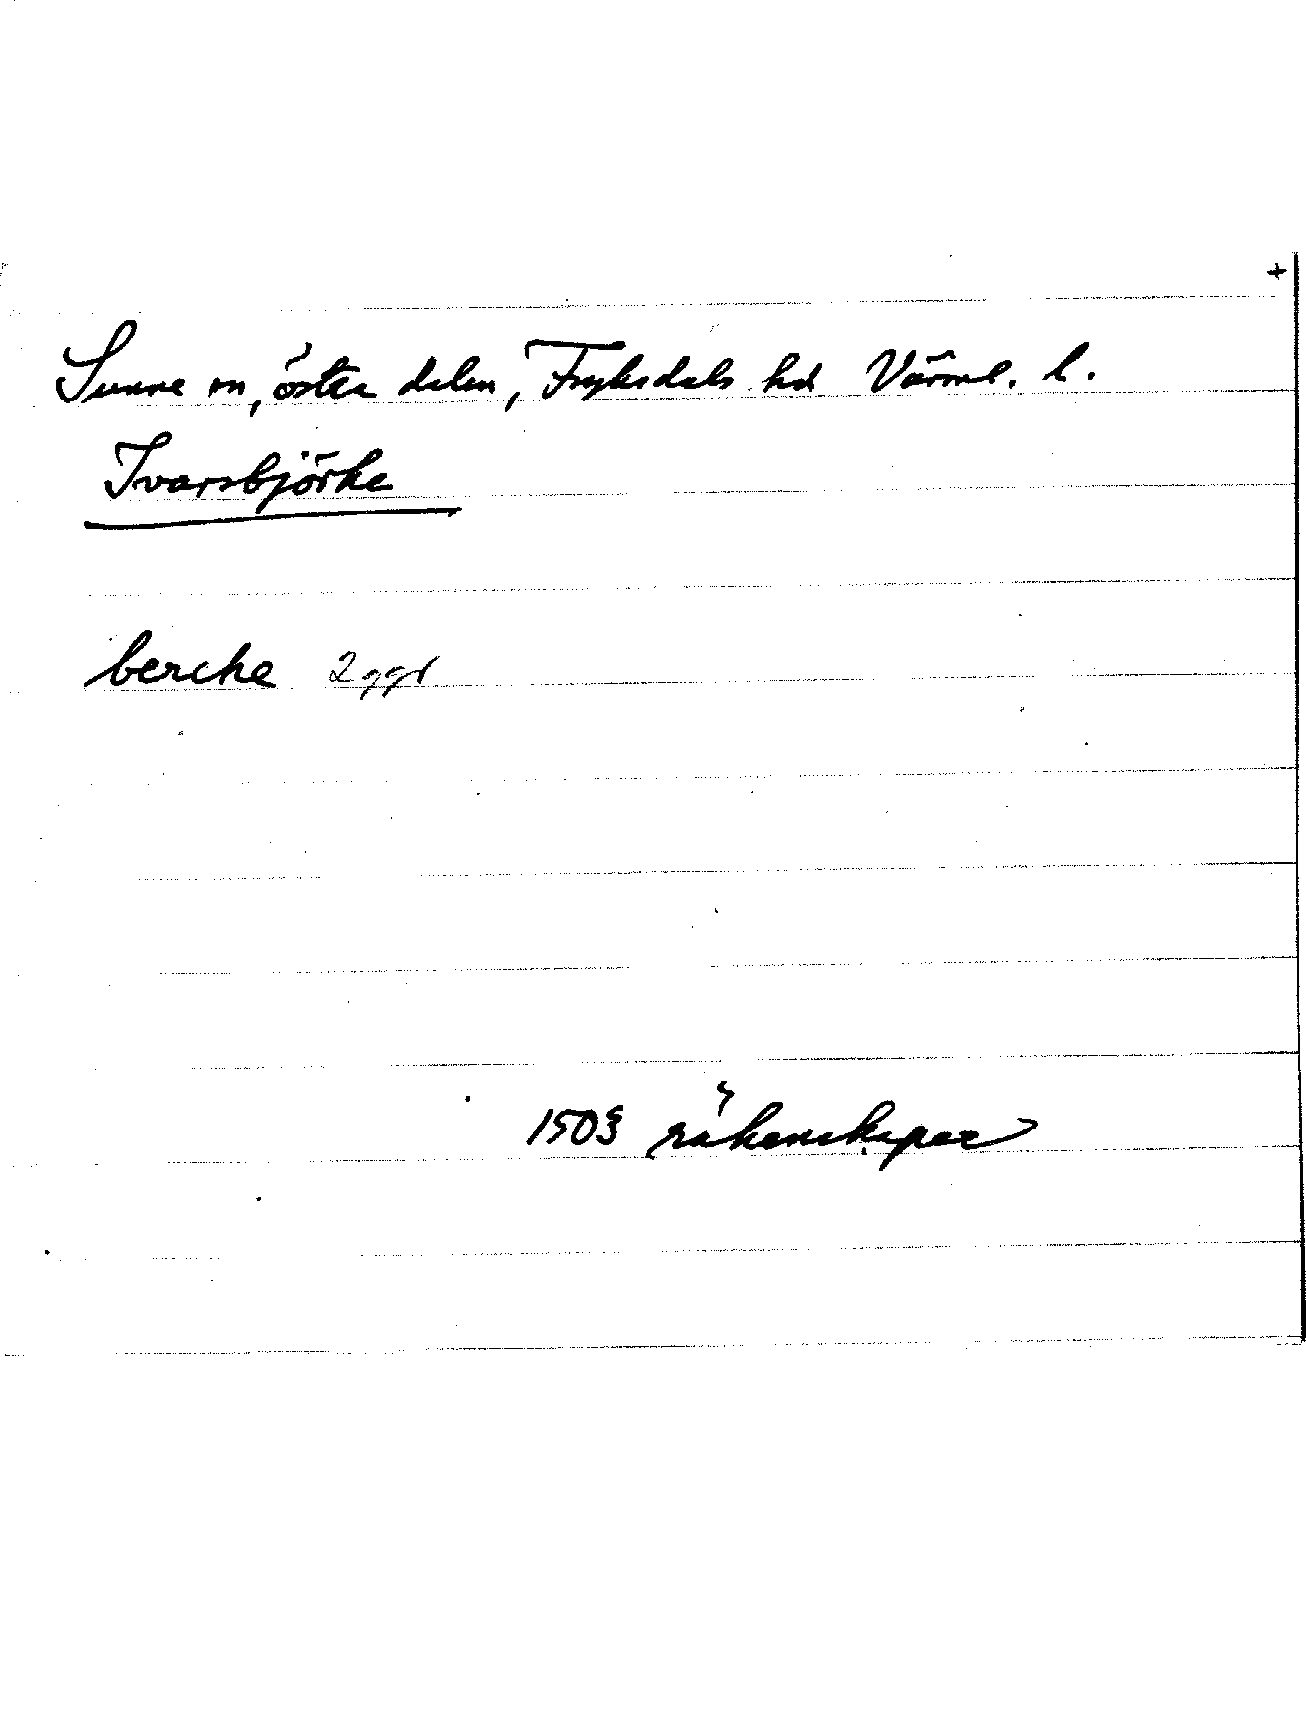 +
Sunne sn, östra delen, Fryksdals hd Värml. l.
Ivarsbjörke
berche 2 ggr
1503 räkenskaper